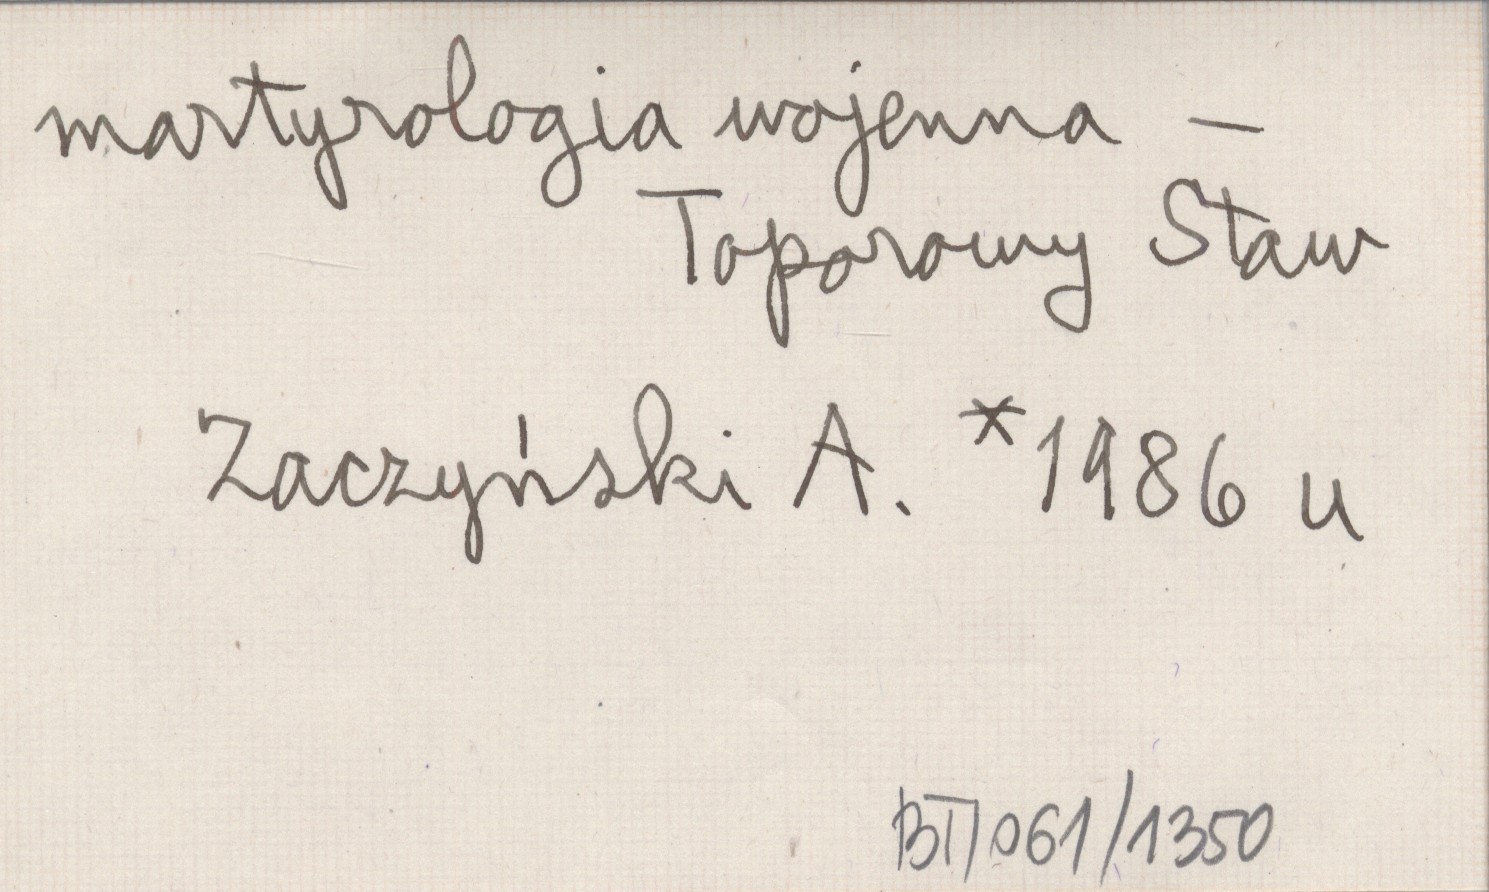 martyrologia wojenna –
Toporowy Staw
Zaczyński A. *1986 u
BT/061/1350